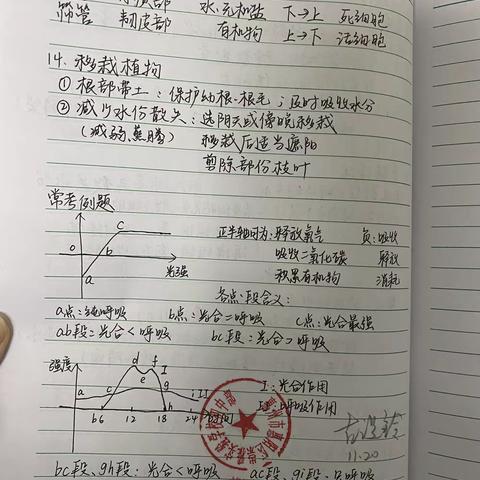 筛管 韧皮部 有机物 上→下 活细胞
水.无机盐 下→上 死细胞
14. 移栽植物
① 根部带土：保护幼根.根毛；及时吸收水分
② 减少水份散失：选阴天或傍晚移栽
(减弱蒸腾) 移栽后适当遮阳
剪除部份枝叶
常考例题
c
正半轴因为：释放氧气 负：吸收
o b
吸收二氧化碳 释放
光强
a
积累有机物 消耗
各点.段含义：
a点：纯呼吸 b点：光合=呼吸 c点：光合最强
ab段：光合<呼吸 bc段：光合>呼吸
强度
d f I
a c e g i II
I：光合作用
b6 12 18 h 24 时间
II：呼吸作用
11.20
bc段、gh段：光合<呼吸 ac段、gi段